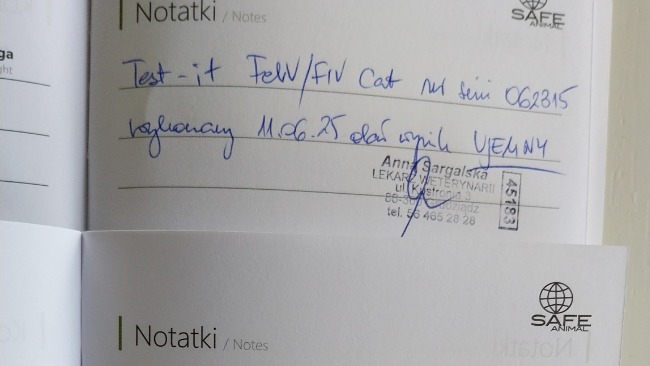 ga
ght
Notatki / Notes
SAFE
ANIMAL
Test-it FeLV/FIV Cat nr serii 062315
wykonany 11.06.25 dał wynik UJEMNY
Anna Sargalska
LEKARZ WETERYNARII
ul.
tel. 56 465 28 28
45183
Notatki / Notes
SAFE
ANIMAL